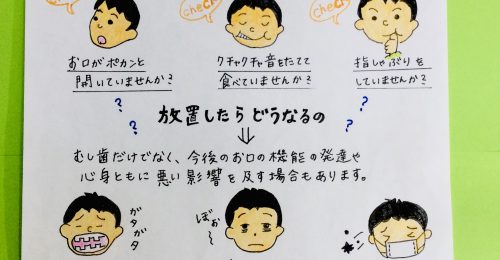 Check
Check
Check
お口がポカンと
開いていませんか？
クチャクチャ音をたてて
食べていませんか？
指しゃぶりを
していませんか？
？ ？ ？ ？
放置したらどうなるの
むし歯だけでなく、今後のお口の機能の発達や
心身ともに悪い影響を及す場合もあります。
ガタガタ
ぼぉ〜